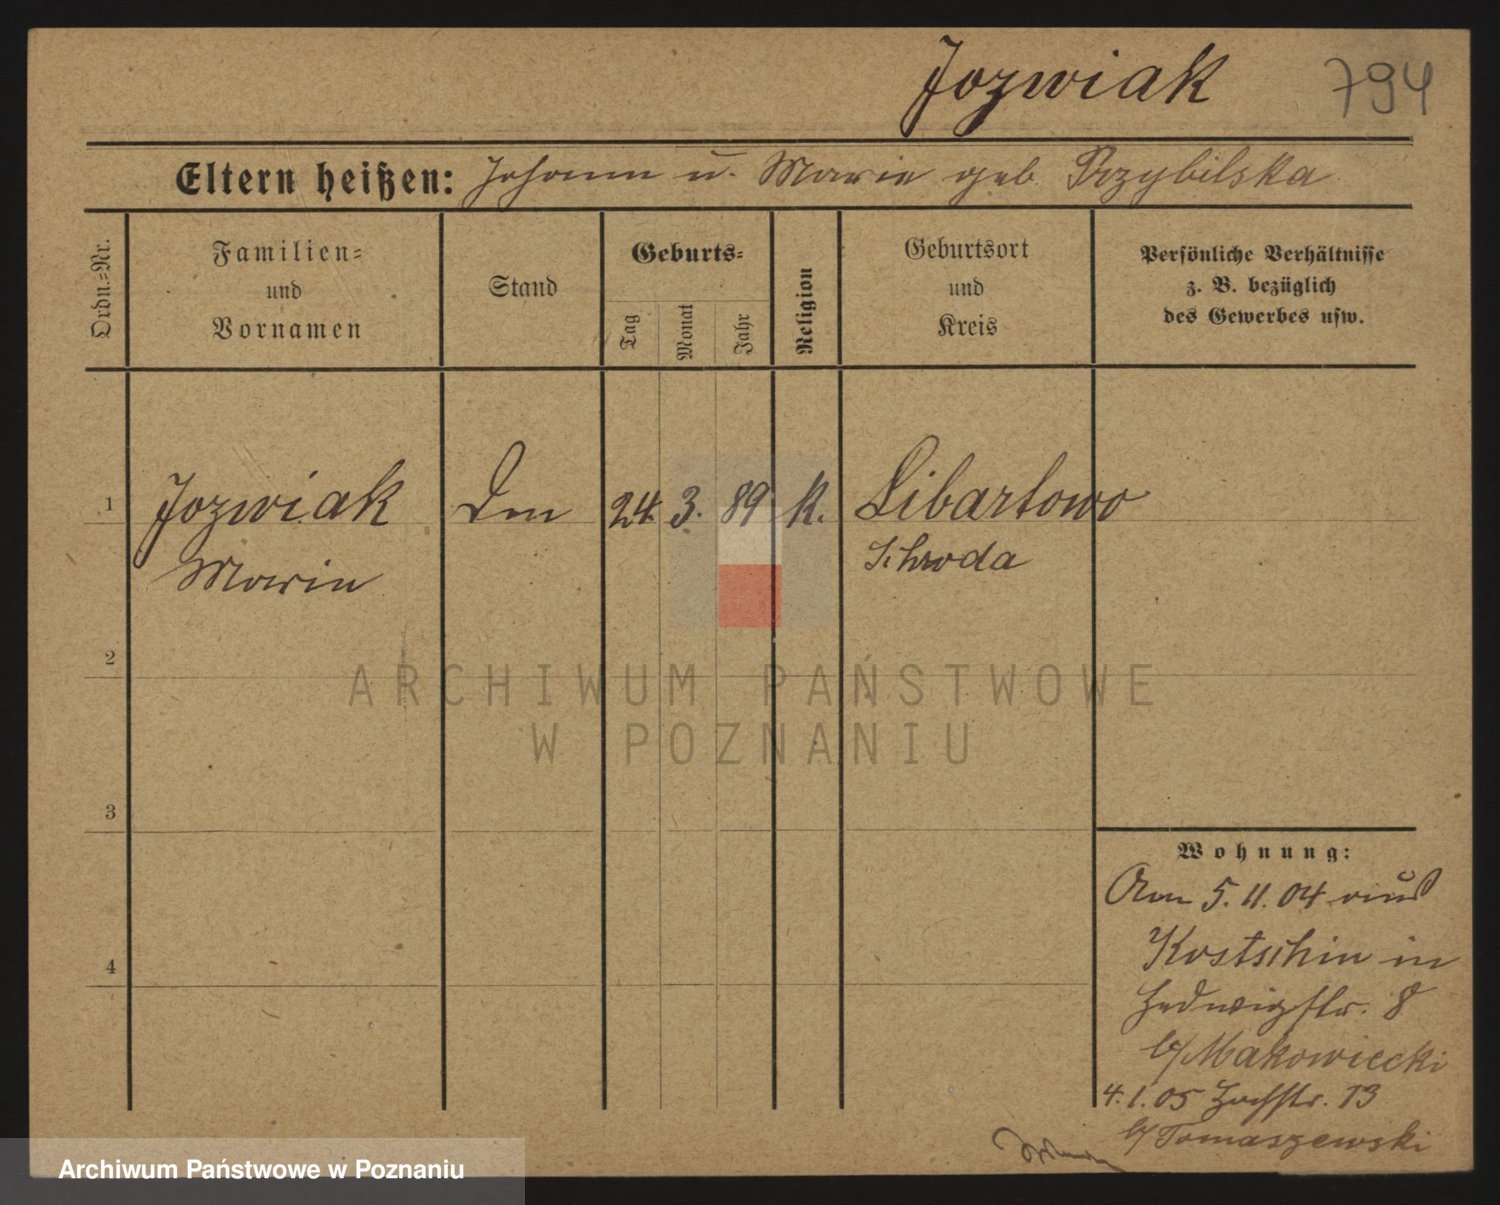 Jozwiak 794
Eltern heißen: Johann u. Marie geb. Przybilska
Ordn.-Nr.
Familien-
und
Vornamen
Stand
Geburts-
Tag
Monat
Jahr
Religion
Geburtsort
und
Kreis
Persönliche Verhältnisse
z. B. bezüglich
des Gewerbes usw.
1 Jozwiak 24. 3. 89 k. Libartowo
Marie Schroda
2
ARCHIWUM PAŃSTWOWE
W POZNANIU
3
4
Wohnung:
Am 5.11.04 aus
Kostschin in
Hedwigstr. 8
b/ Makowiecki
4.1.05 Hochstr. 13
b/ Tomaszewski
Archiwum Państwowe w Poznaniu